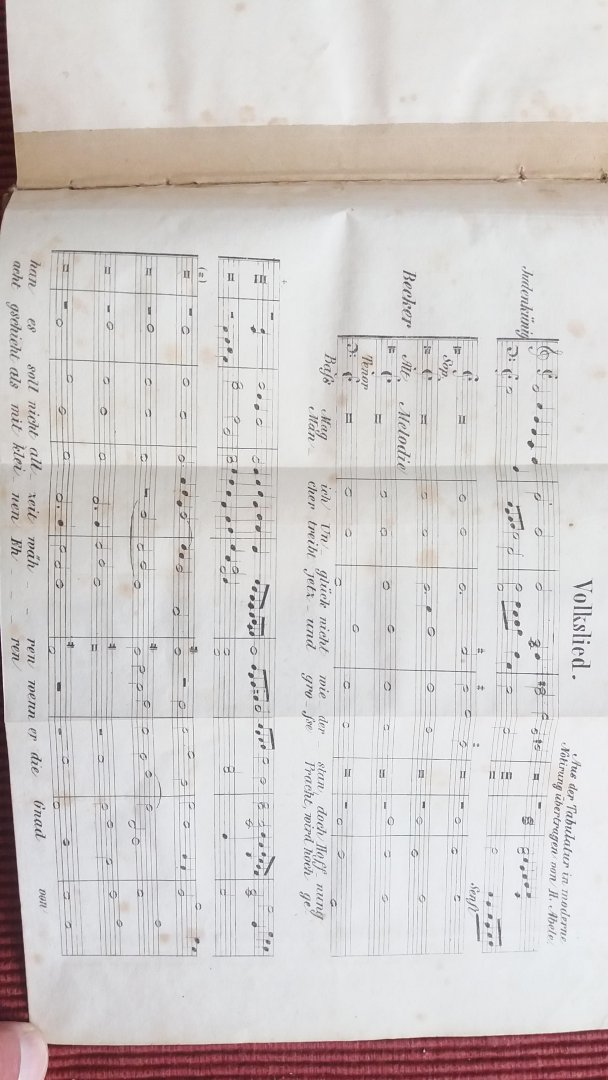 Volkslied.
Aus der Tabulatur in moderne
Notirung übertragen von H. Abele.
Judenkünig
Senfl
Becker
Sop.
Alt Melodie
Tenor
Baſs
Mag ich Un glück nicht wie der stan, doch Hoff nung
Man cher treibt jetz und gro ſse Pracht, wird hoch ge
(a)
han es soll nicht all zeit wäh ren wenn er die Gnad von
acht gschicht als mit klei nen Eh ren